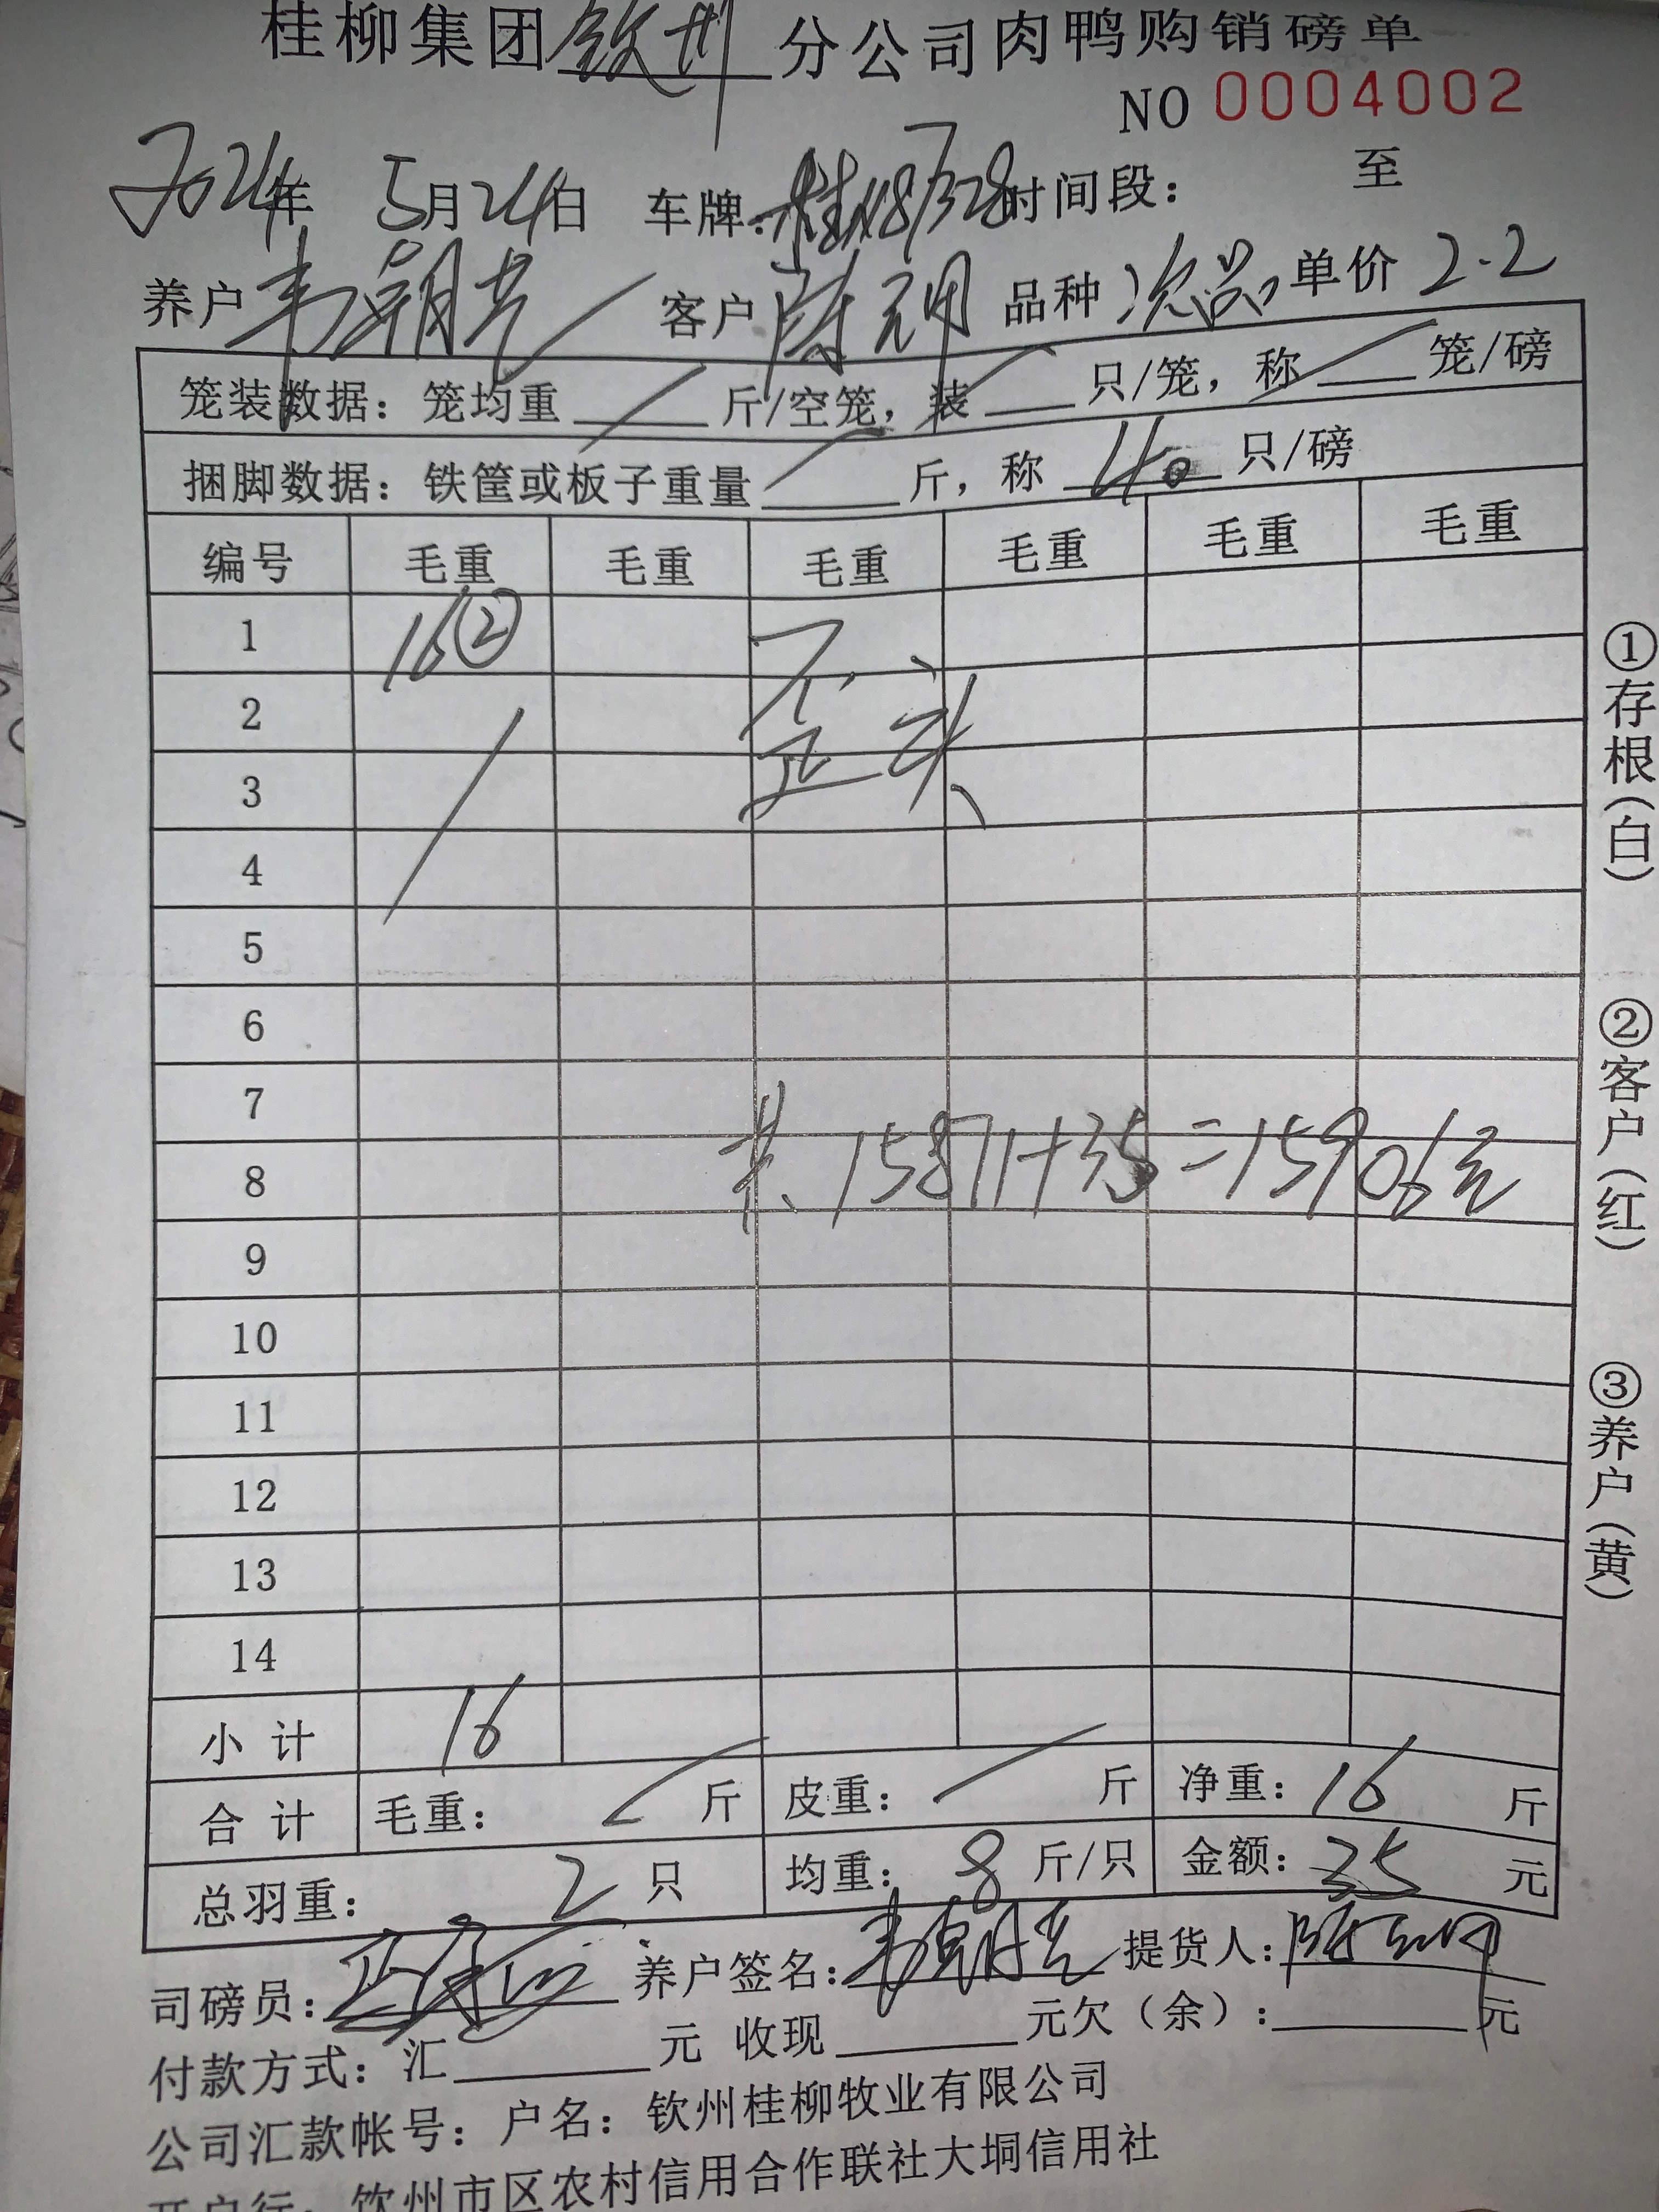 桂柳集团钦州分公司肉鸭购销磅单
NO 0004002
2024年 5月24日 车牌: 桂 时间段: 至
养户 韦朝光 客户 陈 品种 次品 单价 2.2
笼装数据: 笼均重 斤/空笼, 装 只/笼, 称 笼/磅
捆脚数据: 铁筐或板子重量 斤, 称 40 只/磅
编号 毛重 毛重 毛重 毛重 毛重 毛重
1 16②
2
3
4
5
6
7
8 共 15871+35=15906元
9
10
11
12
13
14
小计 16
合计 毛重: 斤 皮重: 斤 净重: 16 斤
总羽重: 2 只 均重: 8 斤/只 金额: 35 元
司磅员: 养户签名: 韦朝光 提货人: 陈
付款方式: 汇 元 收现 元欠(余): 元
公司汇款帐号: 户名: 钦州桂柳牧业有限公司
开户行: 钦州市区农村信用合作联社大垌信用社
①存根(白)
②客户(红)
③养户(黄)